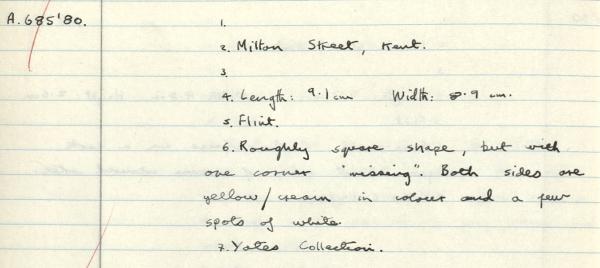 A.685'80.
1.
2. Milton Street, Kent.
3.
4. Length: 9.1 cm Width: 8.9 cm.
5. Flint.
6. Roughly square shape, but with
one corner "missing". Both sides are
yellow/cream in colour and a few
spots of white.
7. Yates Collection.